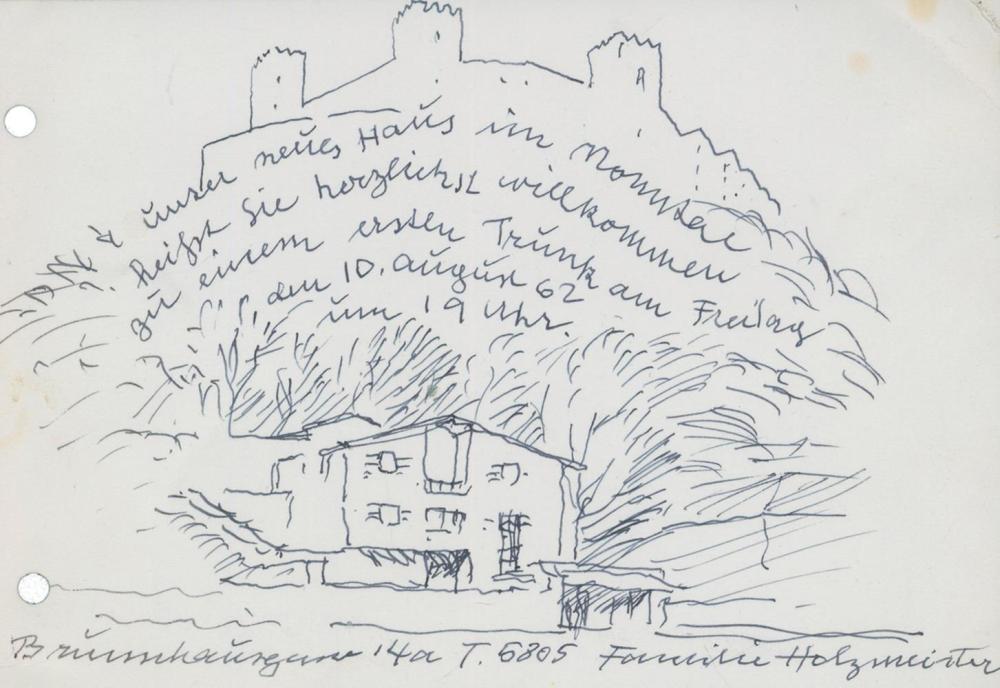 unser neues Haus im Nonntal
heißt Sie herzlichst willkommen
zu einem ersten Trunk am Freitag
, den 10. august 62
um 19 Uhr.
Brunnhausgasse 14a T. 6805 Familie Holzmeister